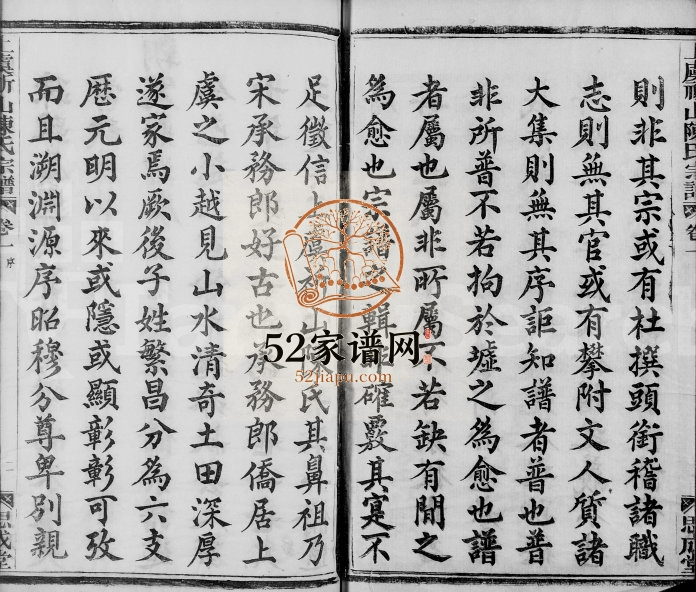 則非其宗或有杜撰頭銜稽諸職
志則無其官或有攀附文人質諸
大集則無其序詎知譜者普也普
非所普不若拘於墟之為愈也譜
者屬也屬非所屬不若缺有間之
為愈也宗譜之輯確覈其寔不
足徵信上虞祈山氏其鼻祖乃
宋承務郎好古也承務郎僑居上
虞之小越見山水清奇土田深厚
遂家焉厥後子姓繁昌分為六支
歷元明以來或隱或顯彰彰可攷
而且溯淵源序昭穆分尊卑別親
山陳氏宗譜
卷一
序
二
思成堂
52家谱网
52jiapu.com